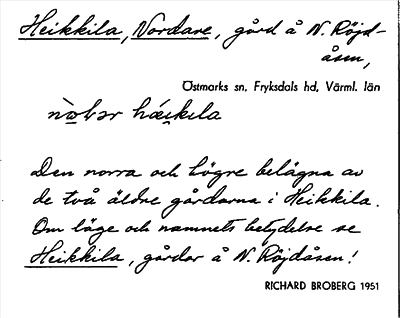 Heikkila, Nordare, gård å N. Röjd-
åsen,
Östmarks sn, Fryksdals hd, Värml. län
häikila
Den norra och högre belägna av
de två äldre gårdarna i Heikkila.
Om läge och namnets betydelse se
Heikkila, gårdar å N. Röjdåsen!
RICHARD BROBERG 1951